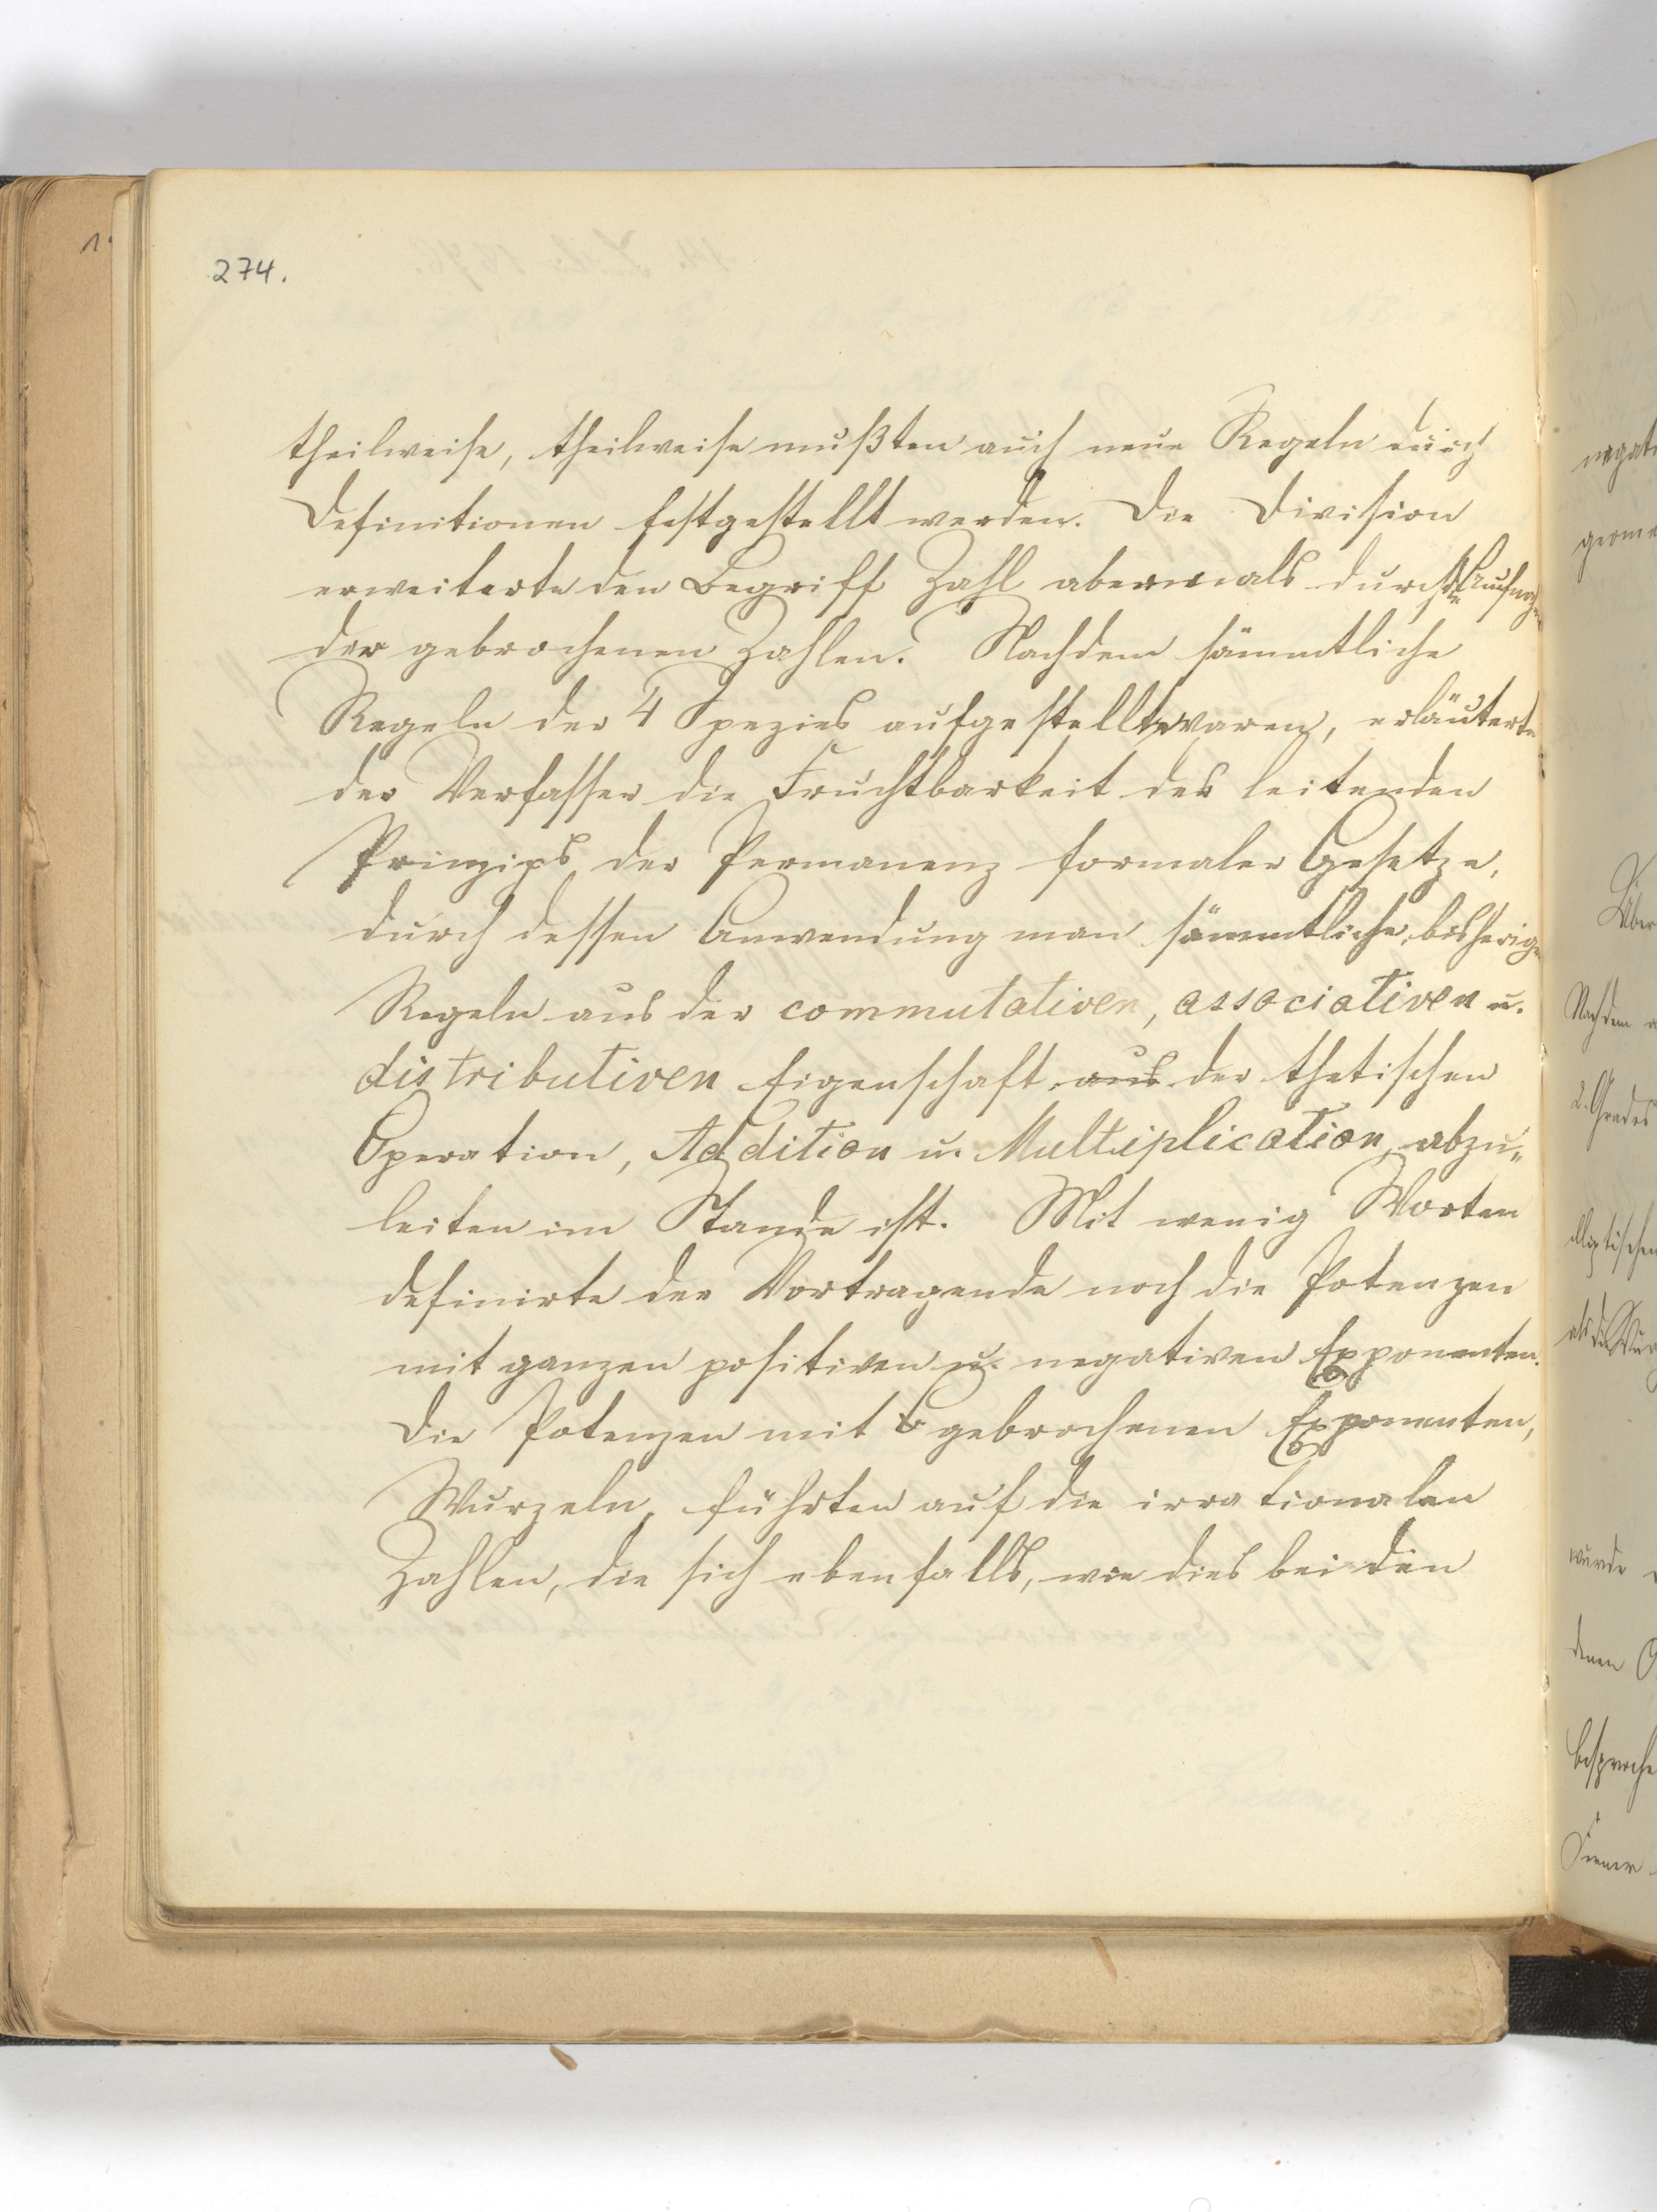 274.
theilweise, theilweise mußten auch neue Regeln durch
Definitionen festgestellt werden. Die Division
erweiterte den Begriff Zahl abermals durch
der gebrochenen Zahlen. Nachdem sämmtliche
Regeln der 4 Spezies aufgestellt waren, erläuterte
der Verfasser die Fruchtbarkeit des leitenden
Prinzips der Permanenz formaler Gesetze,
durch dessen Anwendung man sämmtliche bisherigen
Regeln aus der commutativen, associativen u.
distributiven Eigenschaft aus der thetischen
Operation, Addition u. Multiplication, abzu„
leiten im Stande ist. Mit wenig Worten
definirte der Vortragende noch die Potenzen
mit ganzen positiven u. negativen Exponenten.
Die Potenzen mit gebrochenen Exponenten,
Wurzeln, führten auf die irrationalen
Zahlen, die sich ebenfalls, wie dies bei den
negati
geome
Über
Nachdem
2. Grades
elliptischen
als die Wur
wurde
denen
besproche
Ferner